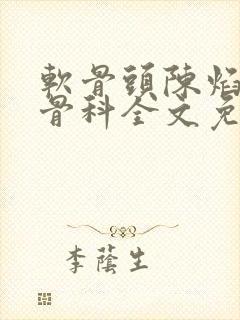 軟骨頭陳焰
骨科全文免
李蔭生